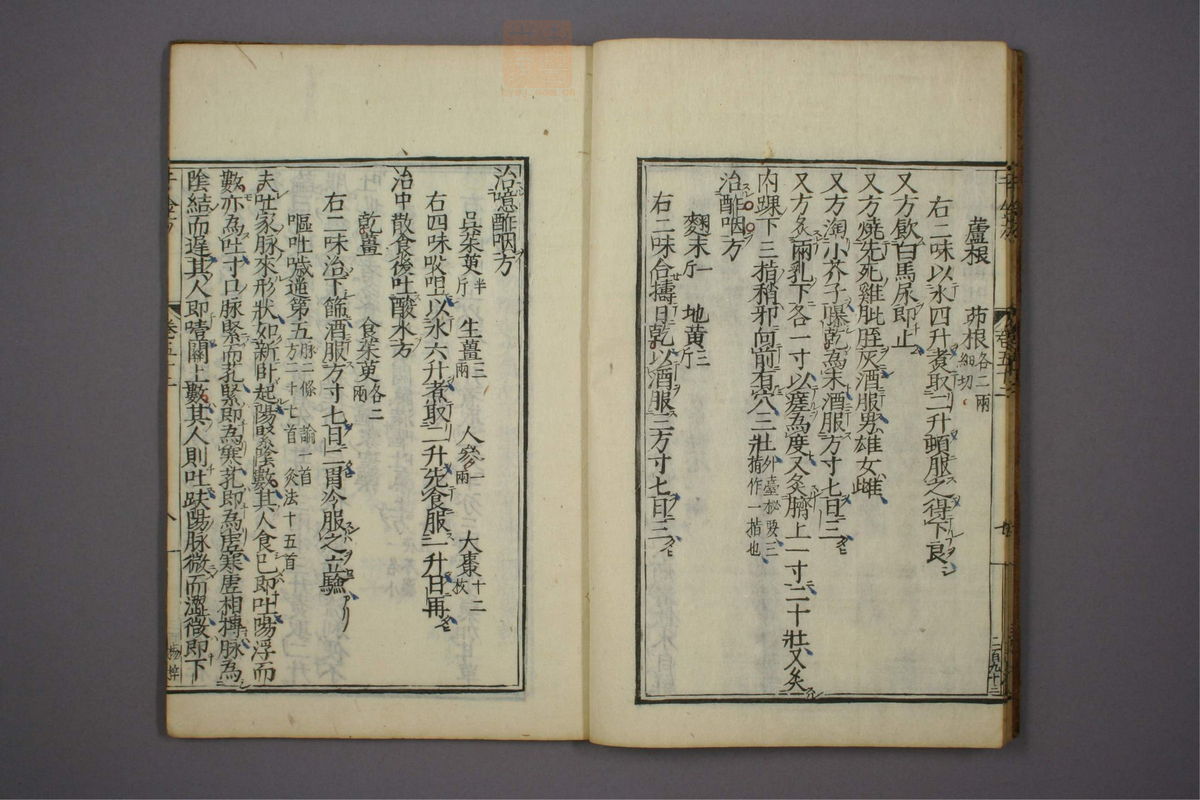 蘆根 茆根各二兩細切
右二味以水四升煮取二升頓服之得下良
又方飲白馬尿即止
又方燒先死雞肶胵灰酒服男雄女雌
又方淘小芥子曝乾爲末酒服方寸匕日三
又方灸兩乳下各一寸以瘥爲度又灸臍上一寸二十壯又灸
內踝下三指稍邪向前有穴三壯外臺秘要三指作一指也
治酢咽方
麴末一斤 地黃三斤
右二味合擣日乾以酒服三方寸匕日三
二百九十三
治噫酢咽方
吳茱萸半斤 生薑三兩 人參一兩 大棗十二枚
右四味㕮咀以水六升煮取二升先食服一升日再
治中散食後吐酸水方
乾薑 食茱萸各二兩
右二味治下篩酒服方寸匕日二胃冷服之立驗
嘔吐噦逆第五脉二條 論一首方二十七首 灸法十五首
夫吐家脉來形狀如新卧起陽緊陰數其人食已即吐陽浮而
數亦爲吐寸口脉緊而芤緊即爲寒芤即爲虛寒虛相摶脉爲
陰結而遲其人即噎關上數其人則吐趺陽脉微而澀微即下
卷五十二